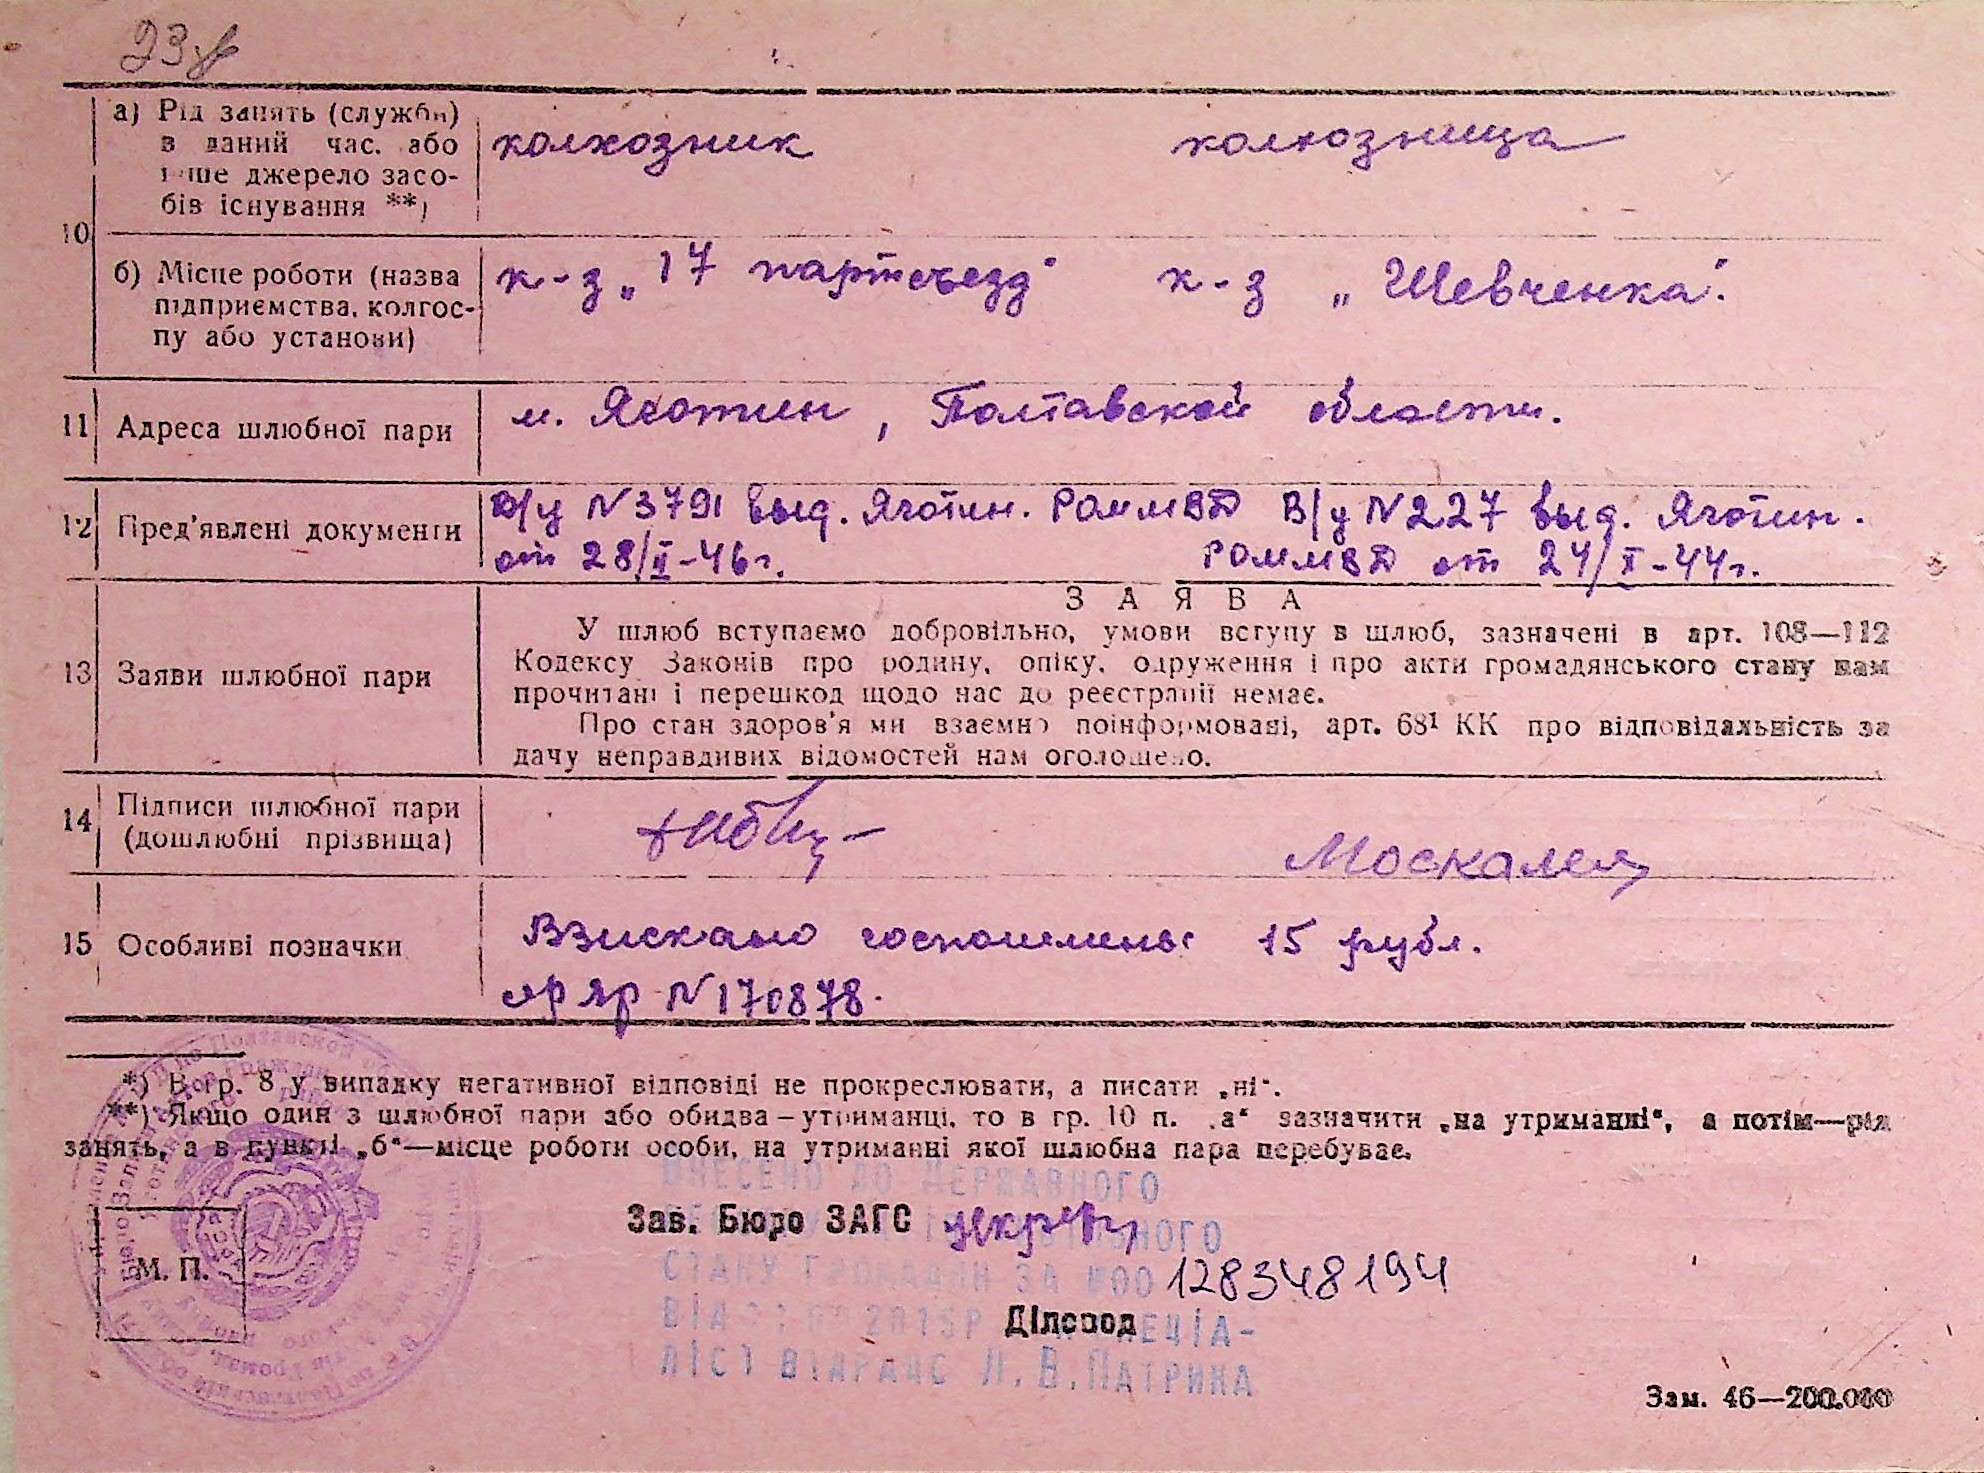 23
а) Рід занять (служби) в даний час, або інше джерело засобів існування **)
колхозник колхозница
10
б) Місце роботи (назва підприємства, колгоспу або установи)
к-з „17 партсъезд" к-з „Шевченка".
11 Адреса шлюбної пари
м. Яготин, Полтавской области.
12 Пред'явлені документи
В/у N3791 выд. Яготин. РОММВД В/у N227 выд. Яготин.
от 28/II-46г. РОММВД от 24/X-44г.
З А Я В А
13 Заяви шлюбної пари
У шлюб вступаємо добровільно, умови вступу в шлюб, зазначені в арт. 108—112
Кодексу Законів про родину, опіку, одруження і про акти громадянського стану нам
прочитані і перешкод щодо нас до реєстрації немає.
Про стан здоров'я ми взаємно поінформовані, арт. 68¹ КК про відповідальність за
дачу неправдивих відомостей нам оголошено.
14 Підписи шлюбної пари
(дошлюбні прізвища)
Москалец
15 Особливі позначки
Взыскано госпошлины 15 рубл.
N170878.
*) В гр. 8 у випадку негативної відповіді не прокреслювати, а писати „ні".
**) Якщо один з шлюбної пари або обидва—утриманці, то в гр. 10 п. „а" зазначити „на утриманні", а потім—рід
занять, а в пункті „б"—місце роботи особи, на утриманні якої шлюбна пара перебуває.
ВНЕСЕНО ДО ДЕРЖАВНОГО
Зав. Бюро ЗАГС
СТАНУ ГРОМАДЯН ЗА №00 128348194
М. П.
ВІД 2015Р СПЕЦІА-
Діловод
ЛІСТ ВІДРАЦС Л.В.ПАТРИНА
Зам. 46—200.000